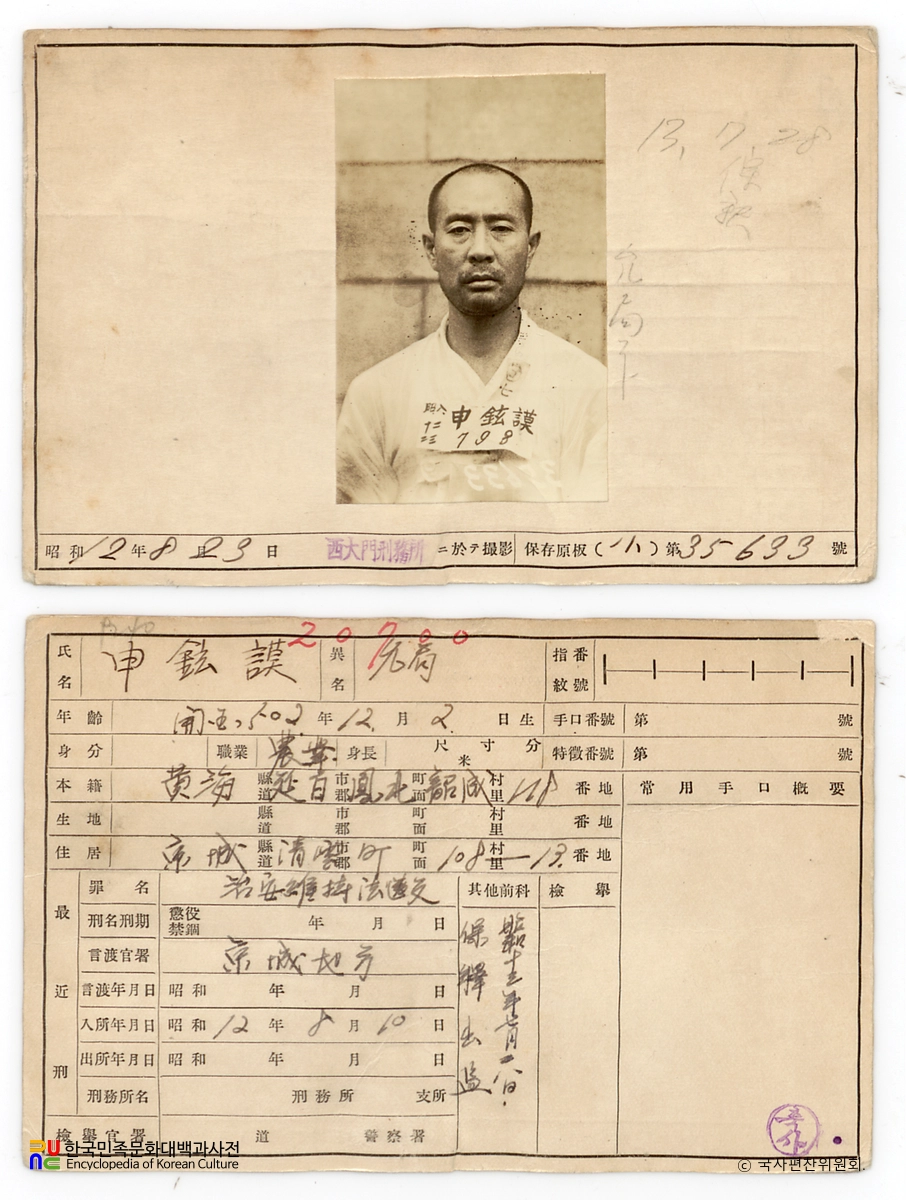 13. 7. 28
保釈
昭
十二
申鉉謨
798
昭和12年8月23日 西大門刑務所ニ於テ撮影 保存原板(小)第35633號
20700
氏名 申鉉謨 異名 指紋番號
年齡 開国502年12月2日生 手口番號 第 號
身分 職業 農業 身長 尺寸分 米 特徵番號 第 號
本籍 黄海 縣道 延白 市郡 鳳北 町面 韶成 村里 128 番地 常用手口概要
生地 縣道 市郡 町面 村里 番地
住居 京城 縣道 清雲町 市郡 町面 108 村里 13 番地
最近刑
罪名 治安維持法違反 其他前科 檢擧
刑名刑期 懲役 禁錮 年 月 日
言渡官署 京城地方
言渡年月日 昭和 年 月 日
入所年月日 昭和12年8月10日
出所年月日 昭和 年 月 日
刑務所名 刑務所 支所
檢擧官署 道 警察署
昭十三年七月二八日
保釋出監
한국민족문화대백과사전
Encyclopedia of Korean Culture
© 국사편찬위원회